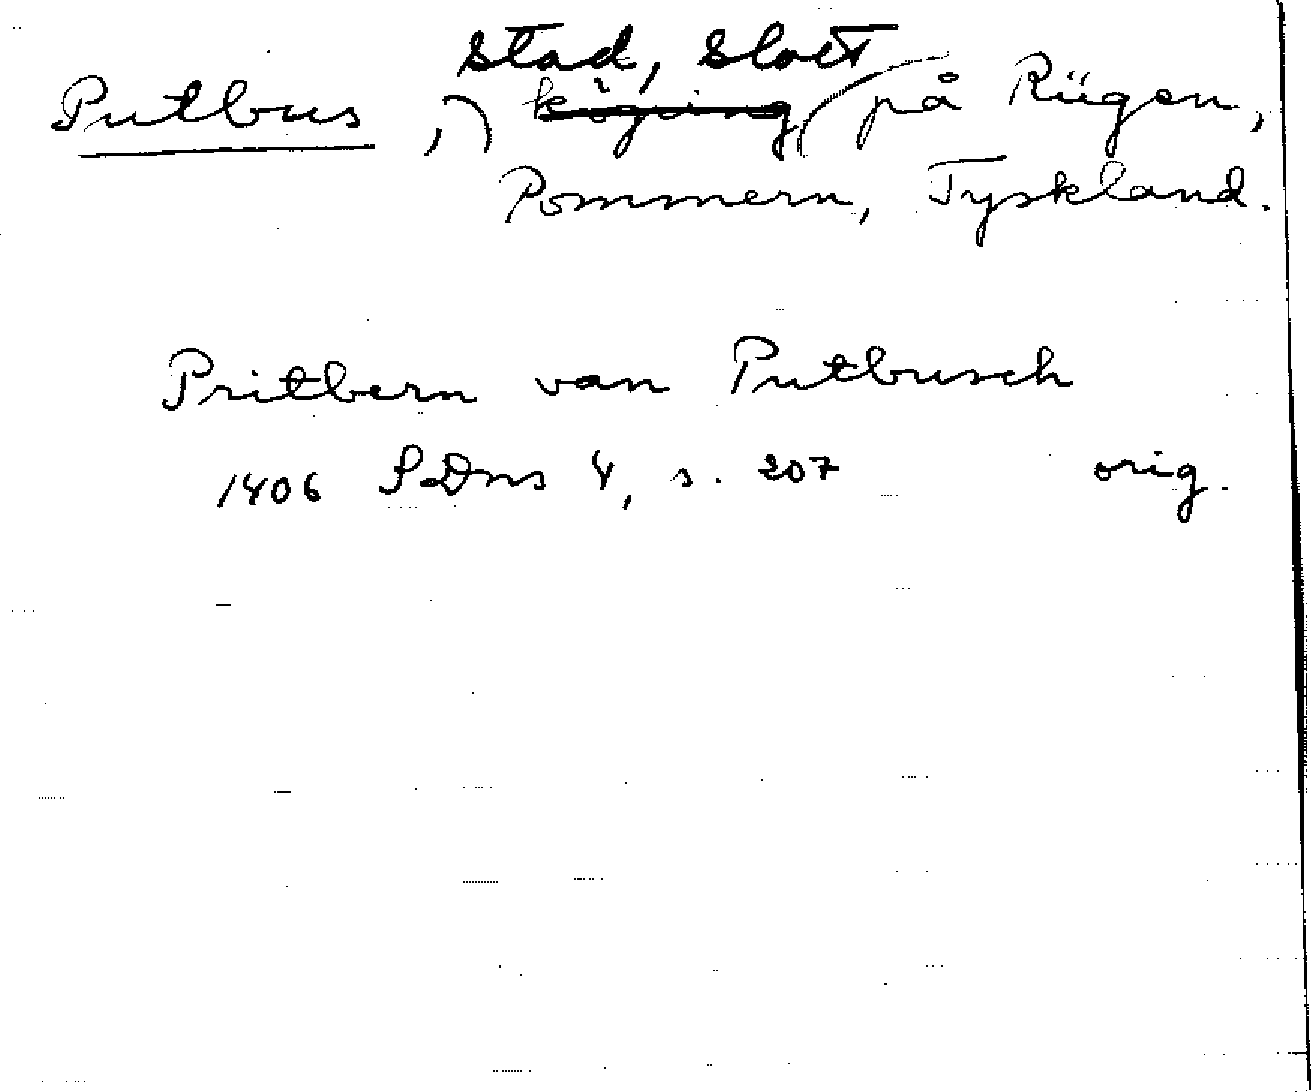 stad, slott
Putbus, köping på Rügen,
Pommern, Tyskland.
Pritbern van Putbusch
1406 SDns 4, s. 207 orig.